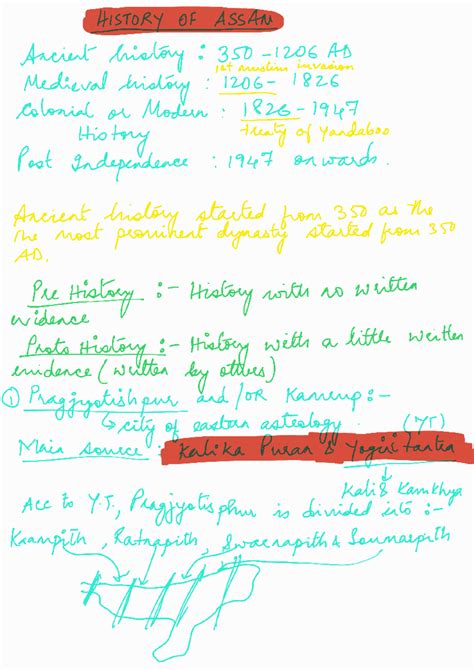 HISTORY OF ASSAM
Ancient history : 350 - 1206 AD
1st muslim invasion
Medieval history : 1206 - 1826
Colonial or Modern : 1826 - 1947
History Treaty of Yandaboo
Post Independence : 1947 onwards.
Ancient history started from 350 as the
the most prominent dynasty started from 350
AD.
Pre History :- History with no written
evidence
Proto History :- History with a little written
evidence (written by others)
① Pragjyotishpur and /OR Kamrup :-
↳ city of eastern astrology.
(YT)
Main source : Kalika Puran & Yogini tantra
Kali & Kamkhya
Acc to Y.T, Pragjyotisphur is divided into :-
Kampith, Ratnapith, Swarnapith & Soumarpith